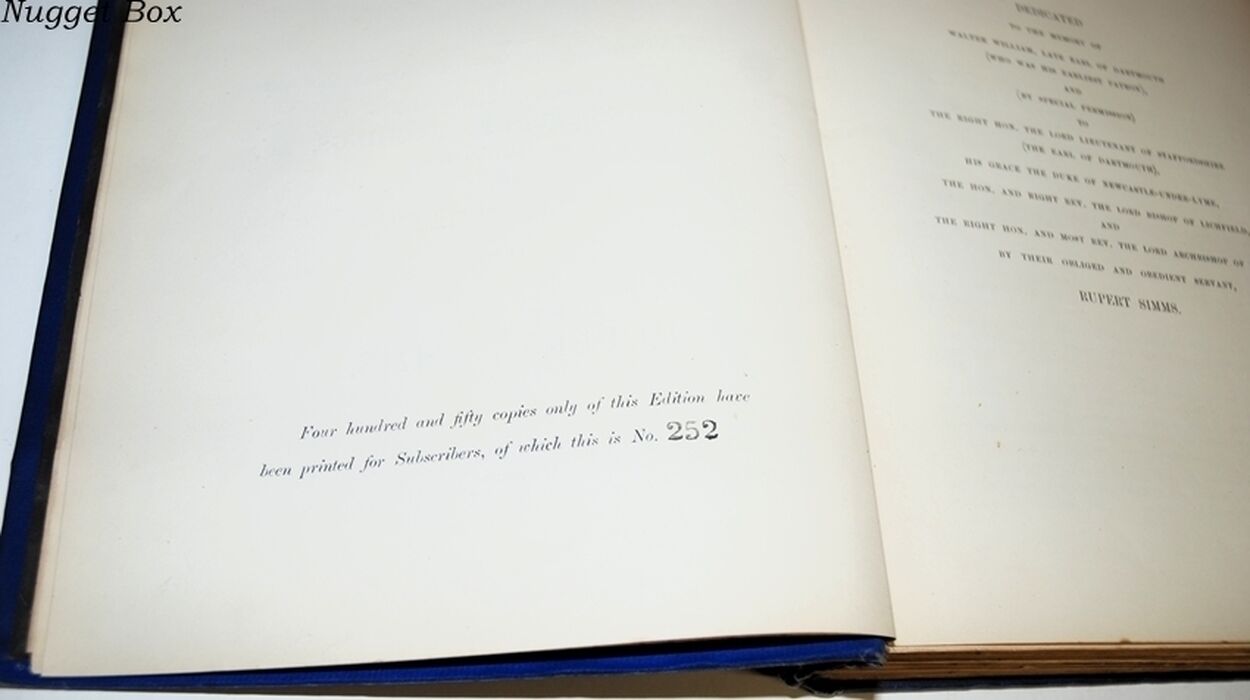 Nugget Box
Four hundred and fifty copies only of this Edition have
been printed for Subscribers, of which this is No. 252
DEDICATED
TO THE MEMORY OF
WALTER WILLIAM, LATE EARL OF DARTMOUTH
(WHO WAS HIS EARLIEST PATRON),
AND
(BY SPECIAL PERMISSION)
TO
THE RIGHT HON. THE LORD LIEUTENANT OF STAFFORDSHIRE
(THE EARL OF DARTMOUTH),
HIS GRACE THE DUKE OF NEWCASTLE-UNDER-LYME,
THE HON. AND RIGHT REV. THE LORD BISHOP OF LICHFIELD,
AND
THE RIGHT HON. AND MOST REV. THE LORD ARCHBISHOP OF
BY THEIR OBLIGED AND OBEDIENT SERVANT,
RUPERT SIMMS.